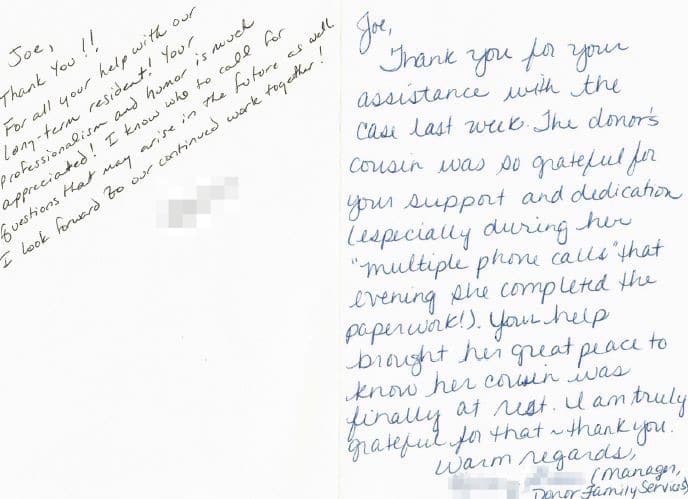 Joe,
Thank You!!
For all your help with our
long-term resident! Your
professionalism and humor is much
appreciated! I know who to call for
questions that may arise in the future as well.
I look forward to our continued work together!
Joe,
Thank you for your
assistance with the
case last week. The donor's
cousin was so grateful for
your support and dedication
(especially during her
"multiple phone calls" that
evening she completed the
paperwork!). Your help
brought her great peace to
know her cousin was
finally at rest. I am truly
grateful for that ~ thank you.
Warm regards,
(Manager,
Donor Family Services)